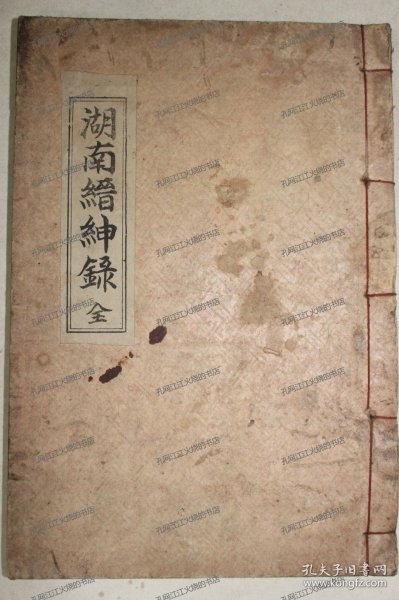 湖南縉紳錄 全
孔网江江火烧的书店
孔夫子旧书网
https://www.kongfz.com